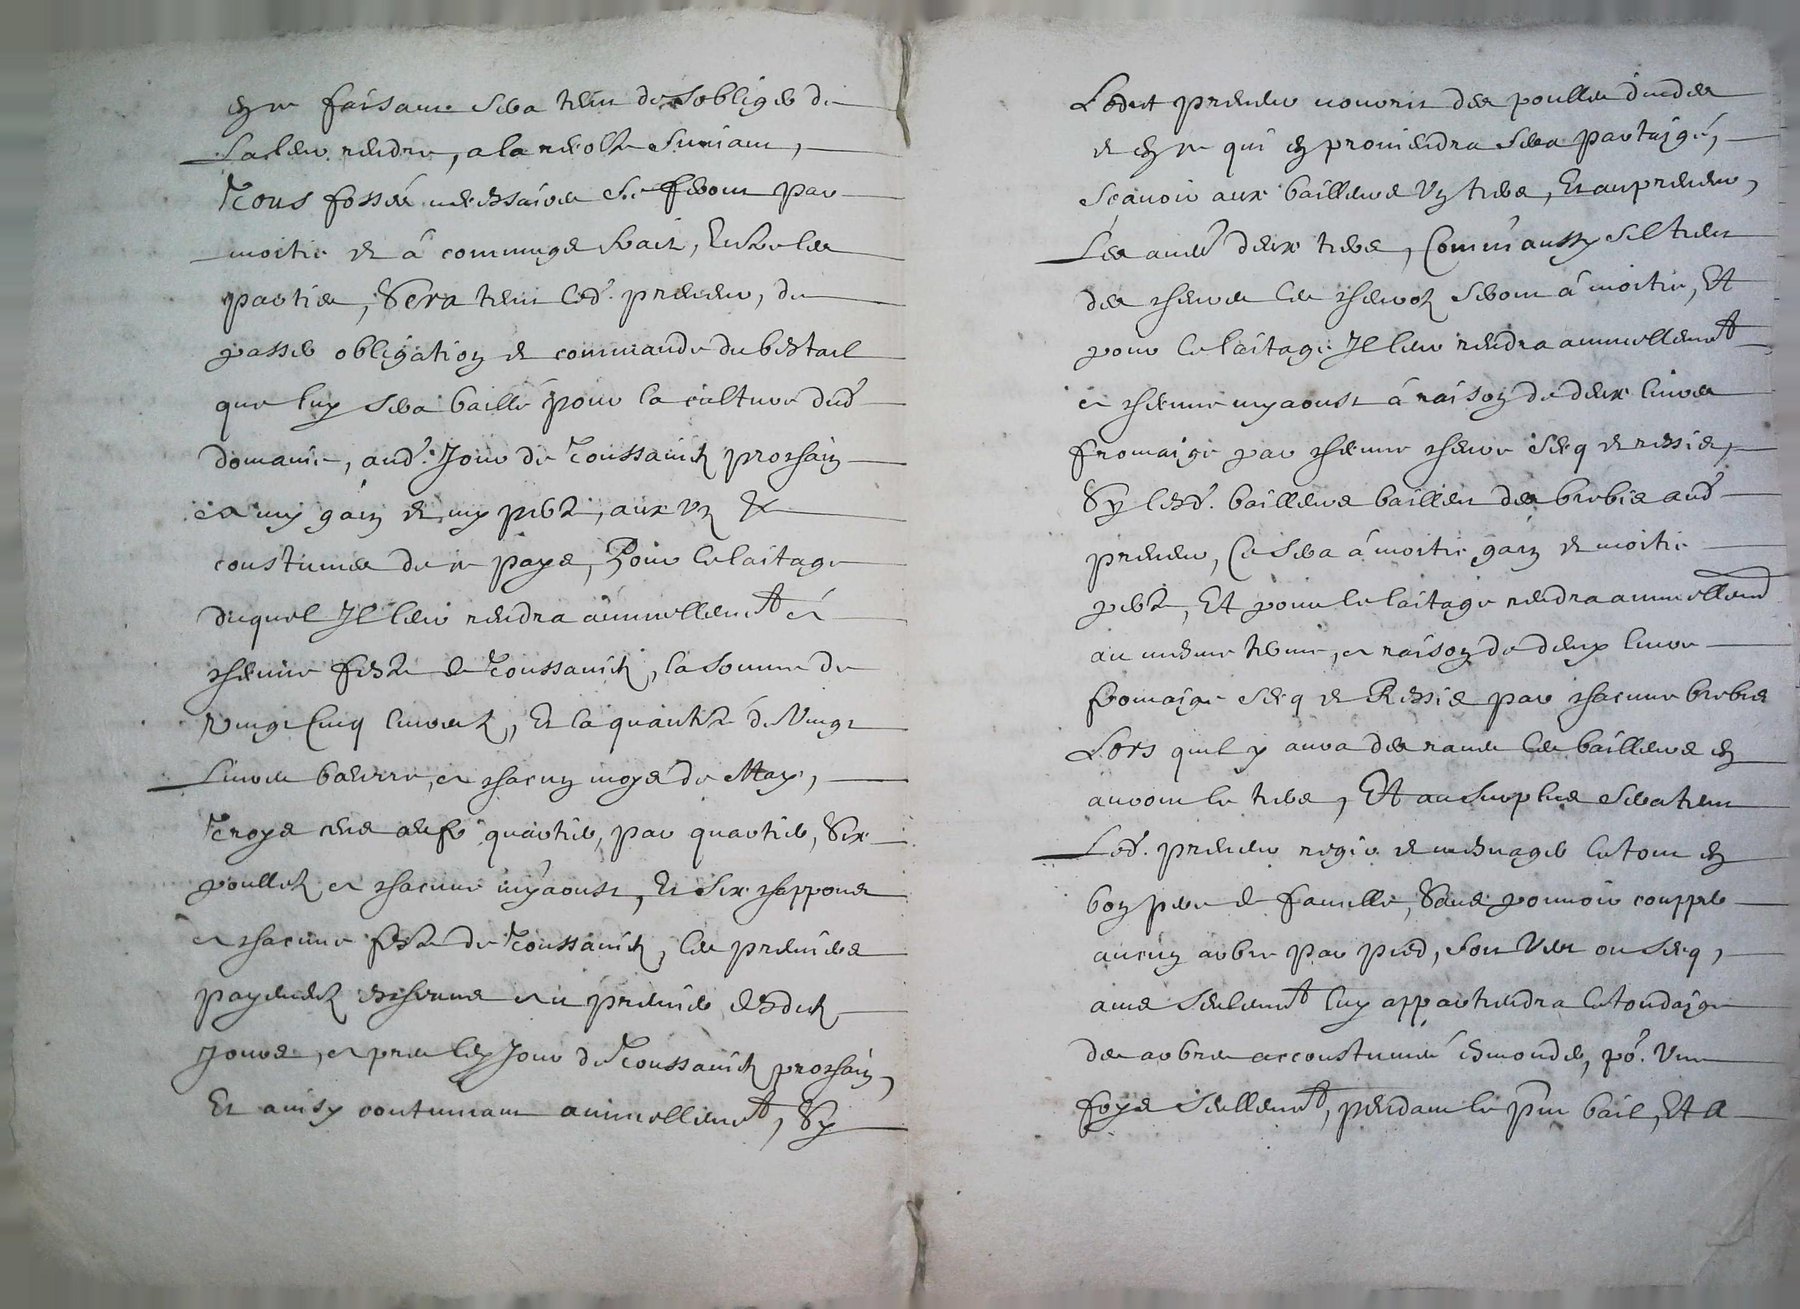 En ce faisant sera tenu de s'obliger de
la leur rendre, a la recolte suivant,
Tous fossés necessaires se feront par
moitié et à communs fraiz, Entre les
parties, Sera tenu led. preneur, de
passer obligation et commande du bestail
que luy sera baillé pour la culture dud
domaine, aud. Jour de Toussainctz prochain
a my gain et my perte, aux us &
coustumes de ce pays, Pour le laitage
duquel Il leur rendra annuellement à
chacune feste de Toussainctz, la somme de
vingt cinq livres, Et la quantité de Vingt
Livres beurre, a chacun moys de May,
Troys œufz quartier, par quartier, Six
poulletz a chacune my aoust, Et six chappons
a chacune feste de Toussainctz, les premiers
payementz escherront au premier desdictz
Jours, a pres le Jour de Toussainctz prochain,
Et ainsy continuant annuellement, Sy
Ledict preneur nourrit des poulles d'indes
et ce qui en proviendra sera partaigé,
Scavoir aux bailleurs Un tiers, Et au preneur,
Les autres deux tiers, Comm'aussy s'il tient
des chevres les chevrotz seront à moitié, Et
pour le laitage Il leur rendra annuellement
a chacune my aoust à raison de deux livres
fromaige par chacune chevre secq et ressis,
Sy lesd. bailleurs baillent des brebis aud
preneur, Ce sera à moitié gain et moitié
perte, Et pour le laitage rendra annuellement
au mesme terme, a raison de deux livres
fromaige secq et Ressis par chacune brebis
Lors quil y aura des raves les bailleurs en
auront le tiers, Et au surplus sera tenu
Led. preneur regir et mesnager le tout en
bon pere de famille, Sans pouvoir coupper
aucun arbre par pied, soit Vert ou secq,
ains seulement luy appartiendra le tondaige
des arbres accoustumés esmonder, po. Une
foys seullement, pendant le pnt bail, Et a